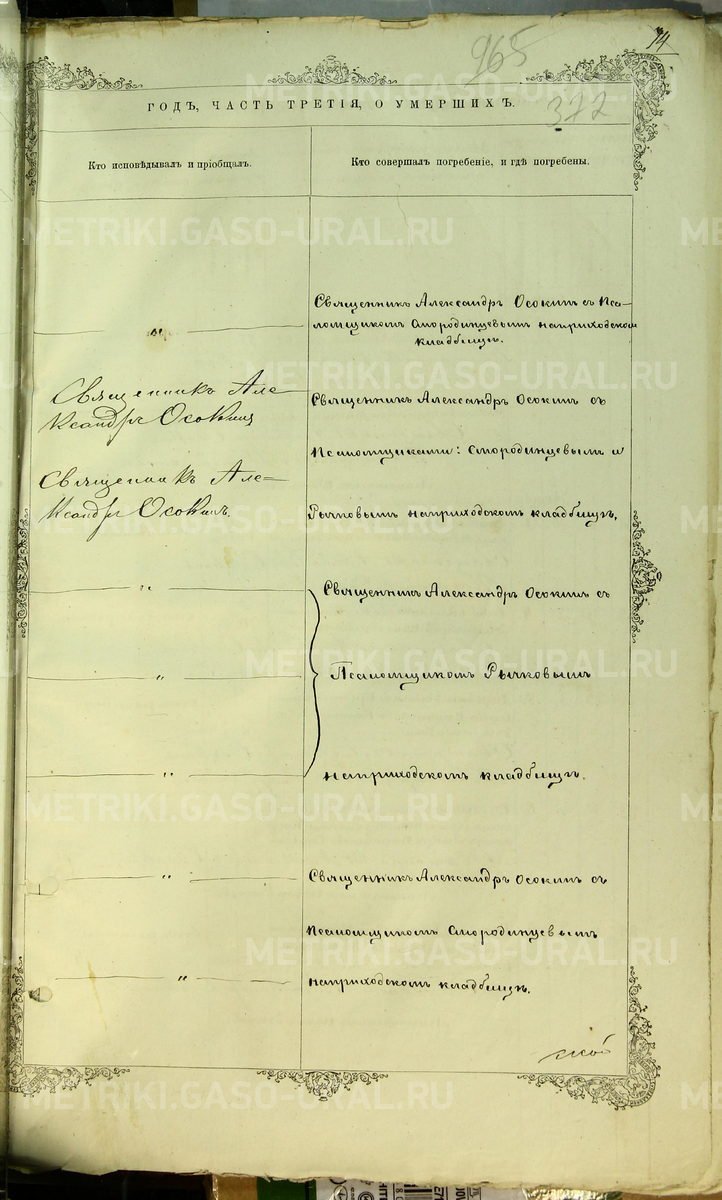 14
965
377
ГОДЪ, ЧАСТЬ ТРЕТІЯ, О УМЕРШИХЪ.
Кто исповѣдывалъ и пріобщалъ.
Кто совершалъ погребеніе, и гдѣ погребены.
Священникъ Александръ Осокинъ съ Пса-
ломщикомъ Смородинцевымъ на приходскомъ
кладбищѣ.
Священникъ Але-
ксандръ Осокинъ
Священникъ Александръ Осокинъ съ
Псаломщиками: Смородинцевымъ и
Священникъ Але-
ксандръ Осокинъ.
Рычковымъ на приходскомъ кладбищѣ.
Священникъ Александръ Осокинъ съ
Псаломщикомъ Рычковымъ
на приходскомъ кладбищѣ.
Священникъ Александръ Осокинъ съ
Псаломщикомъ Смородинцевымъ
на приходскомъ кладбищѣ.
METRIKI.GASO-URAL.RU